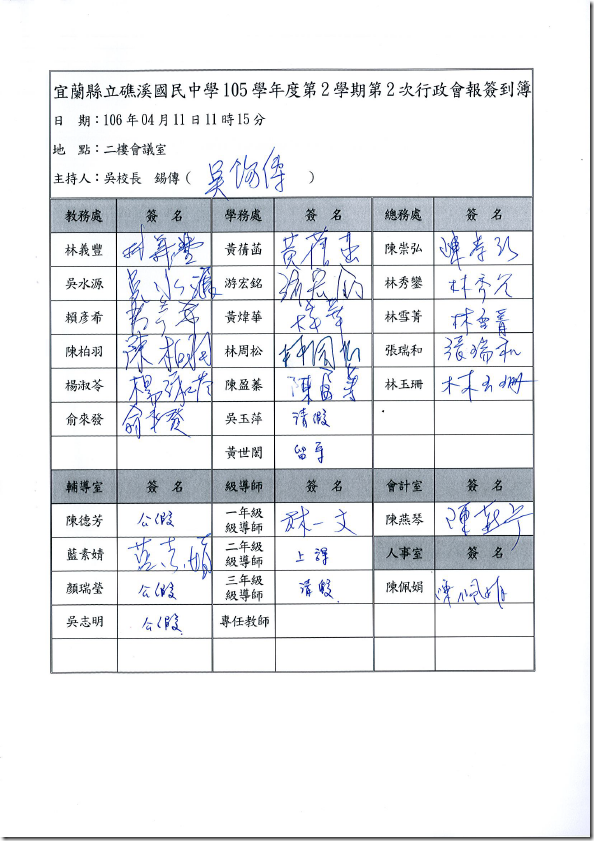 宜蘭縣立礁溪國民中學105學年度第2學期第2次行政會報簽到簿
日 期：106年04月11日11時15分
地 點：二樓會議室
主持人：吳校長 錫傳（ 吳錫傳 ）
教務處 簽 名 學務處 簽 名 總務處 簽 名
林義豐 林義豐 黃蒨菡 黃蒨菡 陳崇弘 陳崇弘
吳水源 吳水源 游宏銘 游宏銘 林秀鑾 林秀
賴彥希 黃煒華 煒華 林雪菁 林雪菁
陳柏羽 陳柏羽 林周松 林周松 張瑞和 張瑞和
楊淑苓 楊淑苓 陳盈蓁 陳盈蓁 林玉珊 林玉珊
俞來發 俞來發 吳玉萍 請假
黃世閎 留守
輔導室 簽 名 級導師 簽 名 會計室 簽 名
陳德芳 公假 一年級級導師 林一文 陳燕琴 陳燕
藍素婧 藍素婧 二年級級導師 上課 人事室 簽 名
顏瑞瑩 公假 三年級級導師 請假 陳佩娟 陳佩娟
吳志明 公假 專任教師